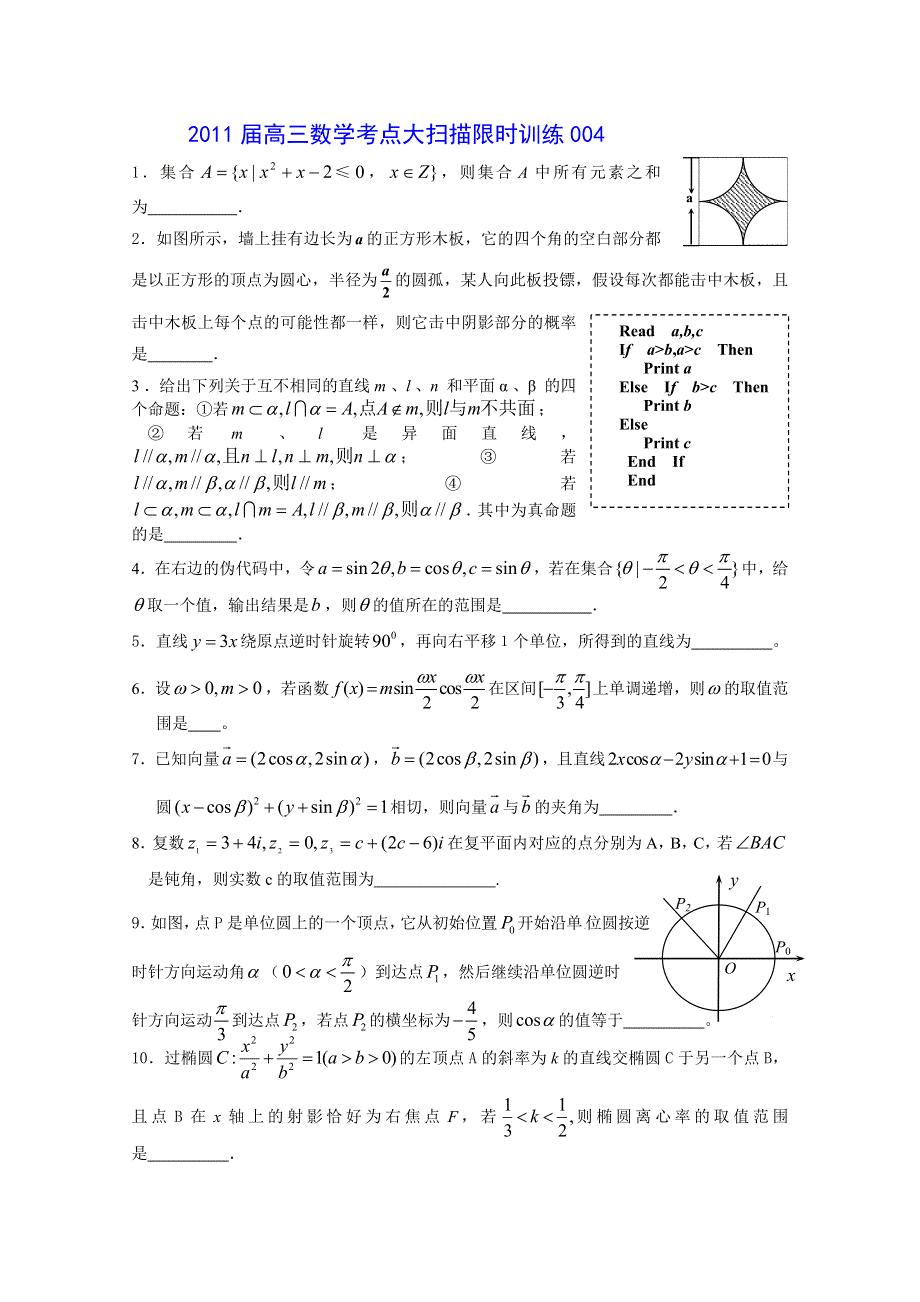 2011届高三数学考点大扫描限时训练004
1．集合 A={x|x²+x-2≤0，x∈Z}，则集合 A 中所有元素之和
为___________．
a
2．如图所示，墙上挂有边长为 a 的正方形木板，它的四个角的空白部分都
是以正方形的顶点为圆心，半径为 a/2 的圆孤，某人向此板投镖，假设每次都能击中木板，且
击中木板上每个点的可能性都一样，则它击中阴影部分的概率
是________．
Read a,b,c
If a>b,a>c Then
Print a
Else If b>c Then
Print b
Else
Print c
End If
End
3．给出下列关于互不相同的直线 m、l、n 和平面 α、β 的四
个命题：①若 m⊂α,l∩α=A,点A∉m,则l与m不共面；
②若 m、l 是异面直线，
l//α,m//α,且n⊥l,n⊥m,则n⊥α；③若
l//α,m//β,α//β,则l//m；④若
l⊂α,m⊂α,l∩m=A,l//β,m//β,则α//β．其中为真命题
的是_________．
4．在右边的伪代码中，令 a=sin2θ,b=cosθ,c=sinθ，若在集合 {θ|-π/2<θ<π/4} 中，给
θ 取一个值，输出结果是 b，则 θ 的值所在的范围是___________．
5．直线 y=3x 绕原点逆时针旋转 90⁰，再向右平移 1 个单位，所得到的直线为__________。
6．设 ω>0,m>0，若函数 f(x)=msin ωx/2 cos ωx/2 在区间 [-π/3,π/4] 上单调递增，则 ω 的取值范
围是____。
7．已知向量 a⃗=(2cosα,2sinα)，b⃗=(2cosβ,2sinβ)，且直线 2xcosα-2ysinα+1=0 与
圆 (x-cosβ)²+(y+sinβ)²=1 相切，则向量 a⃗ 与 b⃗ 的夹角为_________．
8．复数 z₁=3+4i,z₂=0,z₃=c+(2c-6)i 在复平面内对应的点分别为 A，B，C，若 ∠BAC
是钝角，则实数 c 的取值范围为_______________.
9．如图，点 P 是单位圆上的一个顶点，它从初始位置 P₀ 开始沿单位圆按逆
时针方向运动角 α（0<α<π/2）到达点 P₁，然后继续沿单位圆逆时
针方向运动 π/3 到达点 P₂，若点 P₂ 的横坐标为 -4/5，则 cosα 的值等于__________。
y
P₂
P₁
P₀
O
x
10．过椭圆 C:x²/a²+y²/b²=1(a>b>0) 的左顶点 A 的斜率为 k 的直线交椭圆 C 于另一个点 B，
且点 B 在 x 轴上的射影恰好为右焦点 F，若 1/3<k<1/2,则椭圆离心率的取值范围
是__________．